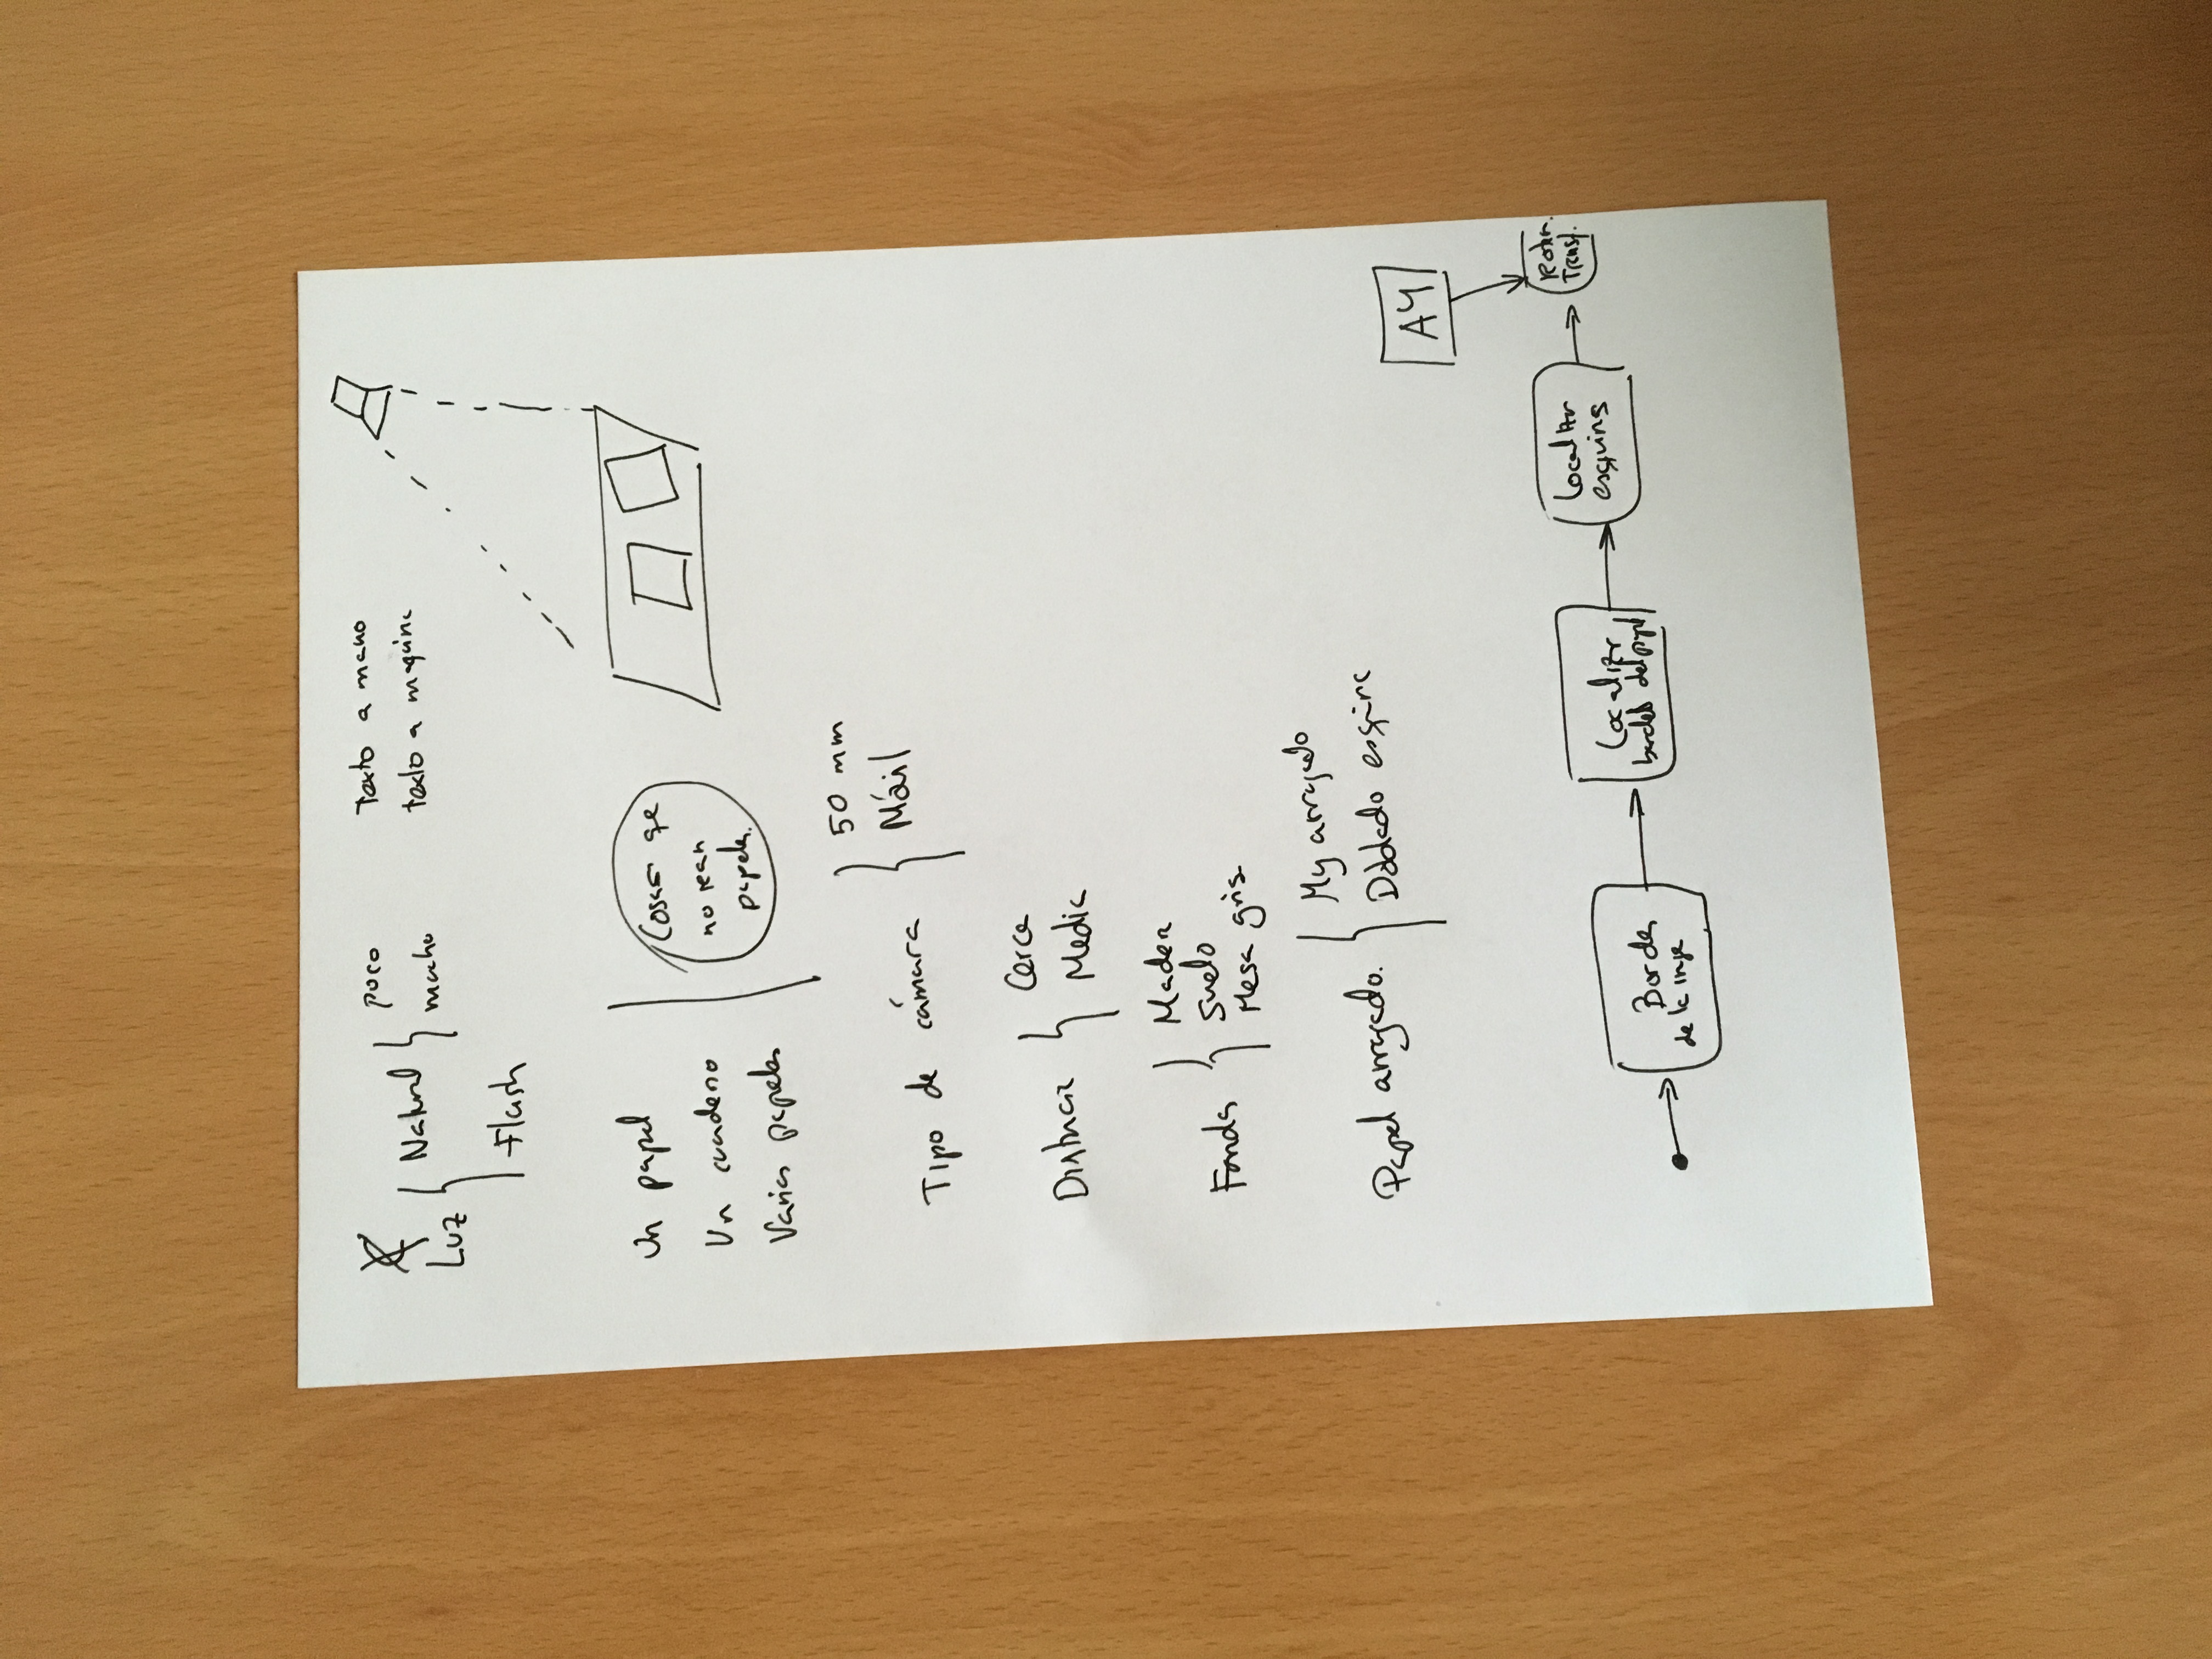 Luz
Natural
poco
mucho
Flash
Texto a mano
texto a maquina
Un papel
Un cuaderno
Varios papeles
Cosas qe
no sean
papeles.
Tipo de cámara
50 mm
Móvil
Distancia
Cerca
Media
Fondos
Madera
Suelo
Mesa gris
Papel arrugado.
Muy arrugado
Doblado esquina
A4
Bordes
de la
Localizar
bordes del papel
Localizar
esquinas
Transf.